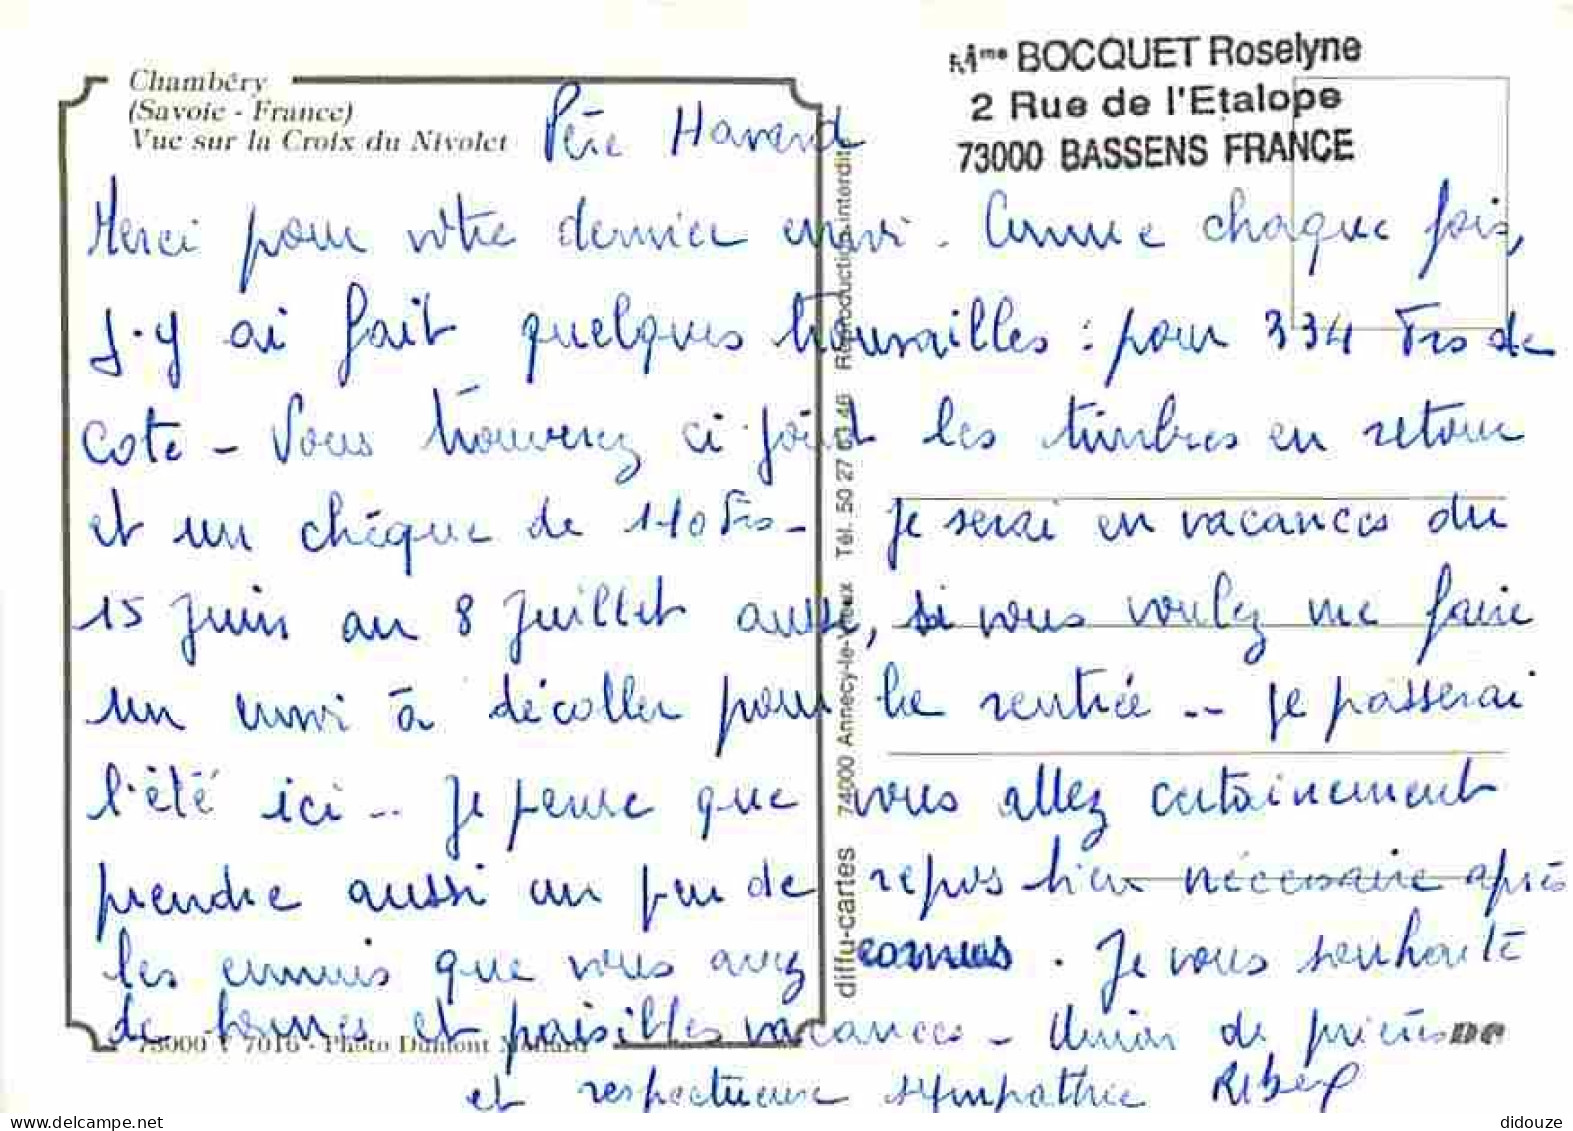 Chambéry
(Savoie - France)
Vue sur la Croix du Nivolet
Mme BOCQUET Roselyne
2 Rue de l'Etalope
73000 BASSENS FRANCE
Père Havard
Merci pour votre dernier envoi. Comme chaque fois,
j'y ai fait quelques trouvailles : pour 334 Frs de
cote - Vous trouverez ci joint les timbres en retour
et un chèque de 110 Frs - Je serai en vacances du
15 Juin au 8 Juillet aussi, si vous voulez me faire
un envoi à décoller pour la rentrée -- je passerai
l'été ici -- Je pense que vous allez certainement
prendre aussi un peu de repos bien nécessaire après
les ennuis que vous avez connus. Je vous souhaite
de bonnes et paisibles vacances - Union de prières
et respectueuse sympathie
diffu-cartes 74000 Annecy-le-Vieux Tél. 50 27 63 46 Reproduction interdite
73000 V 7016 - Photo Dumont
didouze